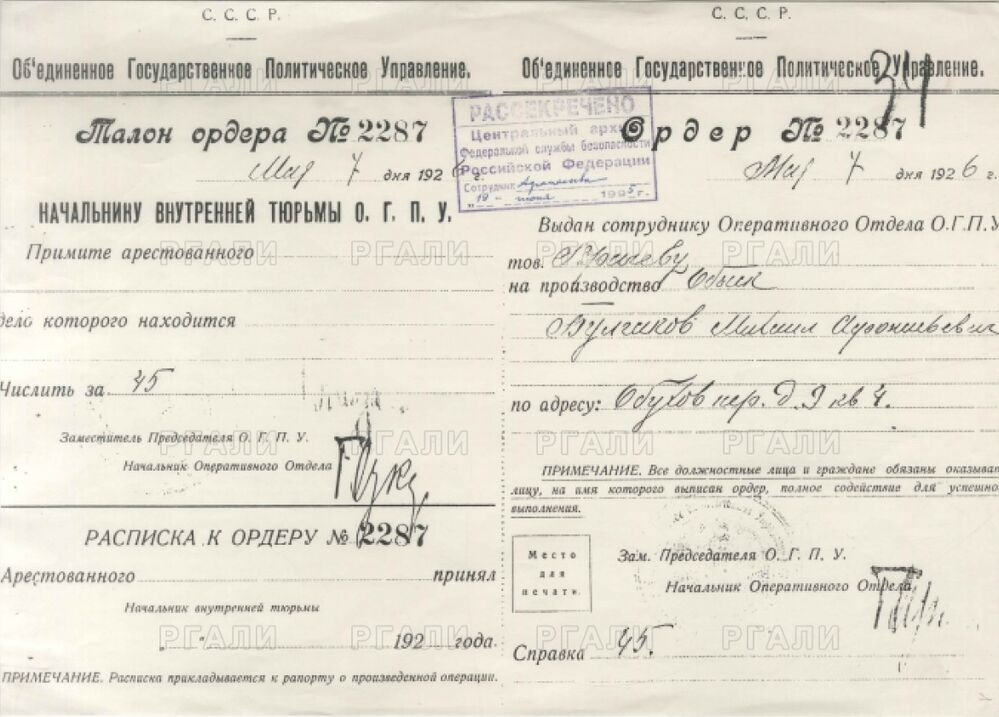 С. С. С. Р.
Об'единенное Государственное Политическое Управление.
Талон ордера № 2287
Мая 7 дня 192 г.
НАЧАЛЬНИКУ ВНУТРЕННЕЙ ТЮРЬМЫ О. Г. П. У.
Примите арестованного
дело которого находится
Числить за 45
Заместитель Председателя О. Г. П. У.
Начальник Оперативного Отдела
РАСПИСКА К ОРДЕРУ № 2287
Арестованного принял
Начальник внутренней тюрьмы
" 192 года.
ПРИМЕЧАНИЕ. Расписка прикладывается к рапорту о произведенной операции.
РАССЕКРЕЧЕНО
Центральный архив
Федеральной службы безопасности
Российской Федерации
Сотрудник
"19 - июня 1995 г.
С. С. С. Р.
Об'единенное Государственное Политическое Управление.
34
Ордер № 2287
Мая 7 дня 1926 г.
Выдан сотруднику Оперативного Отдела О.Г.П.У
тов.
на производство Обыск
Булгаков Михаил Афанасьевич
по адресу: Обухов пер. д. 9 кв 4.
ПРИМЕЧАНИЕ. Все должностные лица и граждане обязаны оказыват
лицу, на имя которого выписан ордер, полное содействие для успешно
выполнения.
Место
для
печати.
Зам. Председателя О. Г. П. У.
Начальник Оперативного Отдела
Справка 45.
РГАЛИ